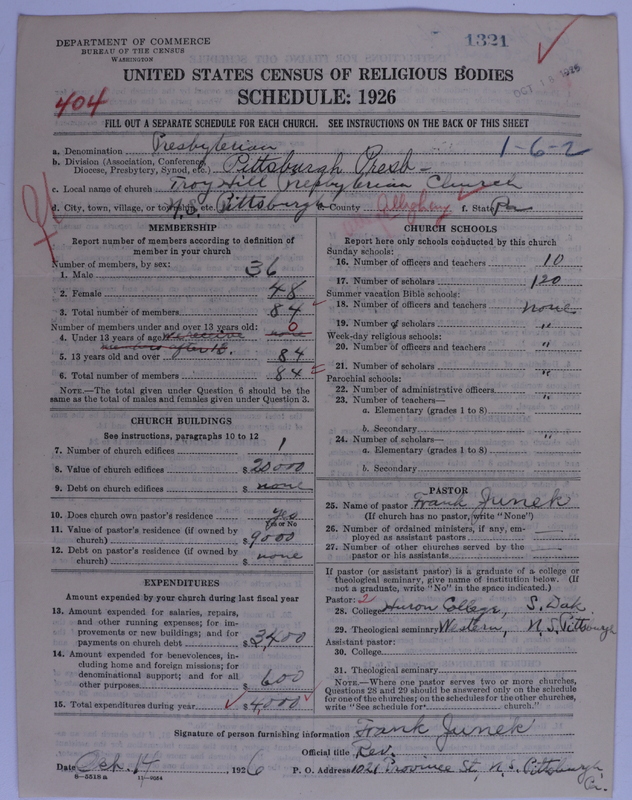 DEPARTMENT OF COMMERCE
BUREAU OF THE CENSUS
WASHINGTON
1321
OCT 18 1926
UNITED STATES CENSUS OF RELIGIOUS BODIES
SCHEDULE: 1926
404
FILL OUT A SEPARATE SCHEDULE FOR EACH CHURCH. SEE INSTRUCTIONS ON THE BACK OF THIS SHEET
a. Denomination Presbyterian
1-6-2
b. Division (Association, Conference, Diocese, Presbytery, Synod, etc.) Pittsburgh Presb-
c. Local name of church Troy Hill Presbyterian Church
d. City, town, village, or township, etc. N.S. Pittsburgh e. County Allegheny f. State Pa
MEMBERSHIP
Report number of members according to definition of
member in your church
Number of members, by sex:
1. Male 36
2. Female 48
3. Total number of members 84
Number of members under and over 13 years old:
4. Under 13 years of age we receive none 0
members after 12.
5. 13 years old and over 84
6. Total number of members 84
NOTE.—The total given under Question 6 should be the
same as the total of males and females given under Question 3.
CHURCH BUILDINGS
See instructions, paragraphs 10 to 12
7. Number of church edifices 1
8. Value of church edifices $ 20000
9. Debt on church edifices $ none
10. Does church own pastor's residence yes
Yes or No
11. Value of pastor's residence (if owned by
church) $ 9000
12. Debt on pastor's residence (if owned by
church) $ none
EXPENDITURES
Amount expended by your church during last fiscal year
13. Amount expended for salaries, repairs,
and other running expenses; for im-
provements or new buildings; and for
payments on church debt $ 3400
14. Amount expended for benevolences, in-
cluding home and foreign missions; for
denominational support; and for all
other purposes $ 600
15. Total expenditures during year $ 4,000
CHURCH SCHOOLS
Report here only schools conducted by this church
Sunday schools:
16. Number of officers and teachers 10
17. Number of scholars 120
Summer vacation Bible schools:
18. Number of officers and teachers none
19. Number of scholars "
Week-day religious schools:
20. Number of officers and teachers "
21. Number of scholars "
Parochial schools:
22. Number of administrative officers "
23. Number of teachers—
a. Elementary (grades 1 to 8)
b. Secondary
24. Number of scholars— "
a. Elementary (grades 1 to 8)
b. Secondary
PASTOR
25. Name of pastor Frank Junek
(If church has no pastor, write "None")
26. Number of ordained ministers, if any, em-
ployed as assistant pastors
27. Number of other churches served by the
pastor or his assistants
If pastor (or assistant pastor) is a graduate of a college or
theological seminary, give name of institution below. (If
not a graduate, write "No" in the space indicated.)
Pastor: 2
28. College Huron College, S. Dak.
29. Theological seminary Western, N.S. Pittsburgh
Assistant pastor:
30. College
31. Theological seminary
NOTE.—Where one pastor serves two or more churches,
Questions 28 and 29 should be answered only on the schedule
for one of the churches; on the schedules for the other churches,
write "See schedule for church."
Signature of person furnishing information Frank Junek
Official title Rev.
Date Oct. 14, 1926 P. O. Address 1021 Province St, N.S. Pittsburgh
Pa.
6—5518 a 11—9584